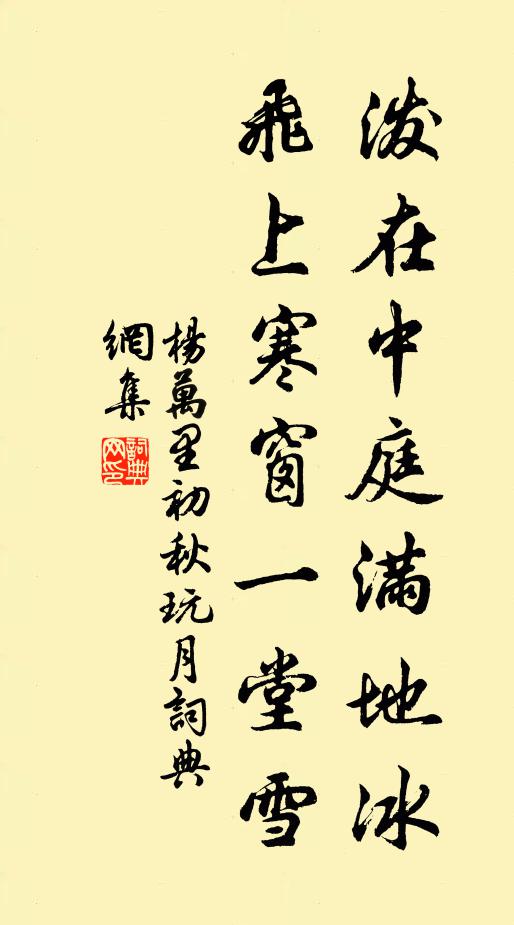 潑在中庭滿地冰
飛上寒窗一堂雪
楊萬里初秋玩月詞典
網集
詞典网印